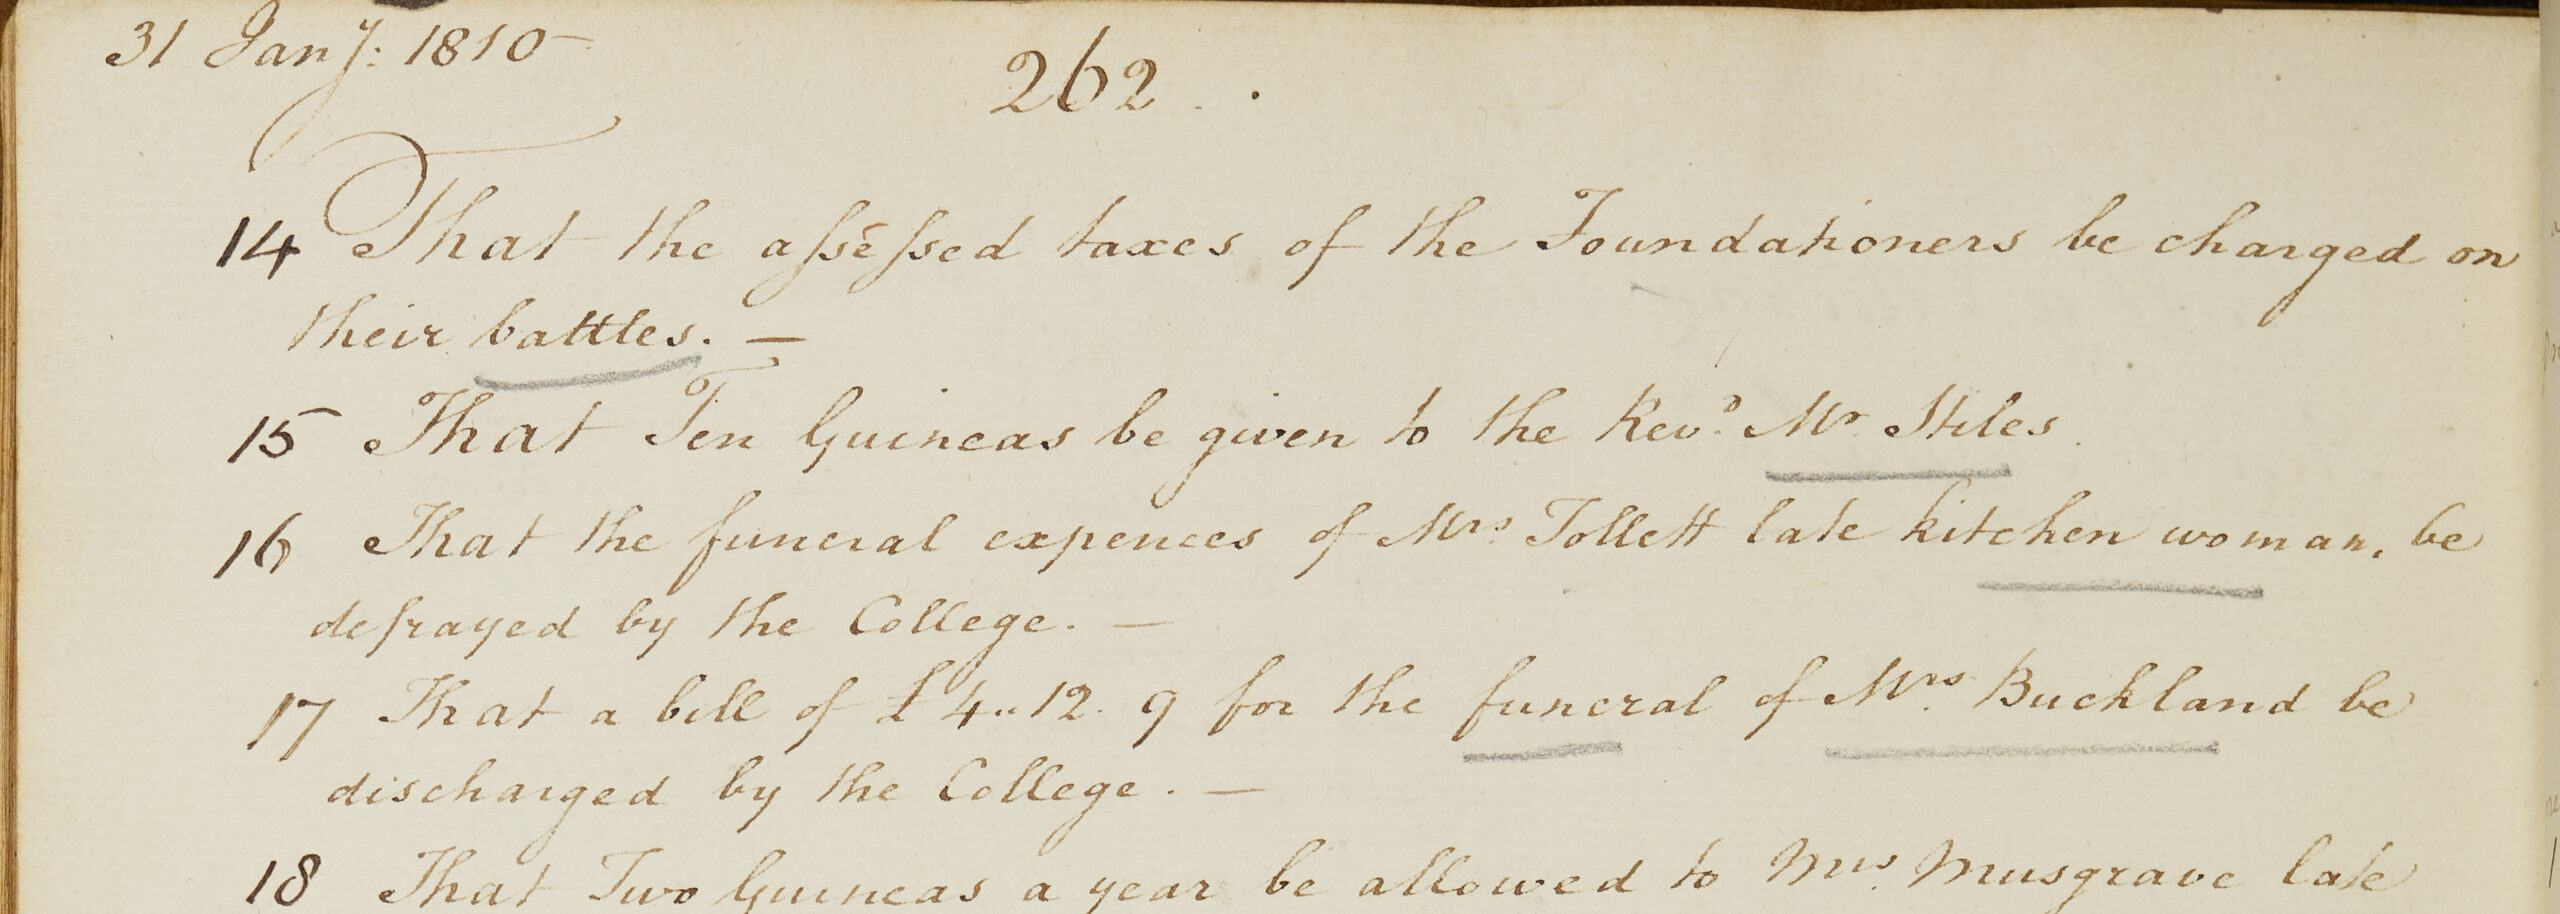 31 Jany: 1810
262.
14 That the assessed taxes of the Foundationers be charged on
their battles. —
15 That Ten Guineas be given to the Revd. Mr Stiles.
16 That the funeral expences of Mrs. Tollett late kitchen woman, be
defrayed by the College. —
17 That a bill of £4..12.9 for the funeral of Mrs. Buckland be
discharged by the College. —
18 That Two Guineas a year be allowed to Mrs. Musgrave late